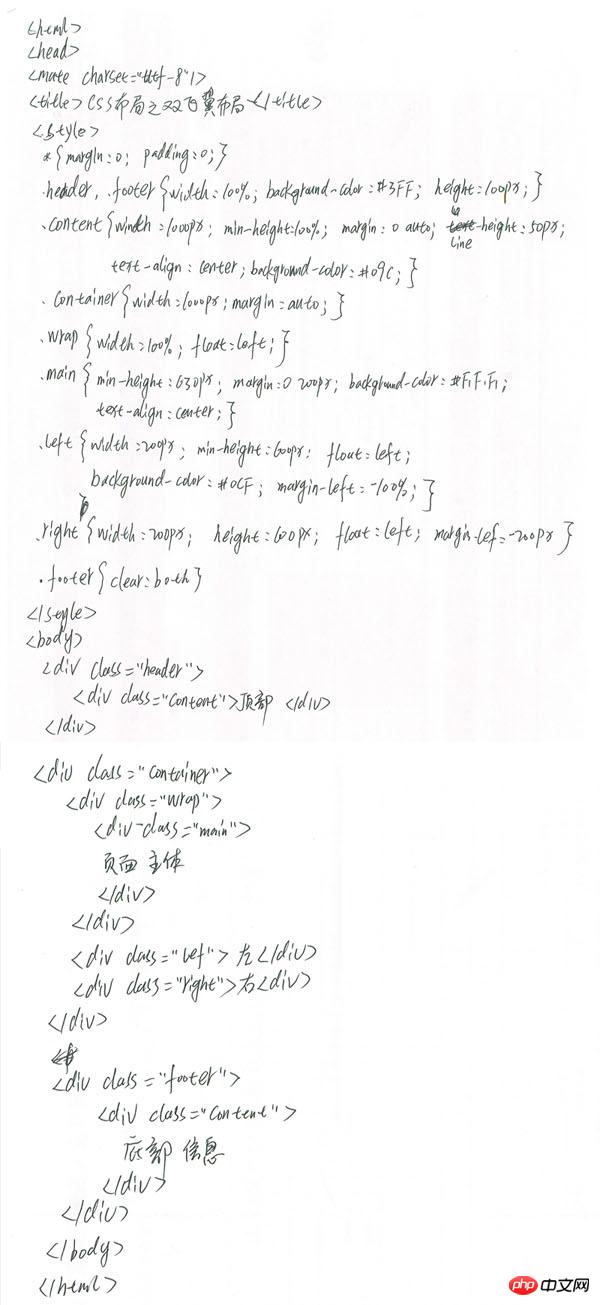 <html>
<head>
<mate charset="utf-8"/>
<title>CSS布局之双飞翼布局</title>
<style>
*{margin:0; padding:0;}
.header, .footer{width:100%; background-color:#3FF; height:100px;}
.content{width:1000px; min-height:100%; margin:0 auto; line-height:50px;
text-align:center; background-color:#09C;}
.container{width:1000px; margin:auto;}
.wrap{width:100%; float:left;}
.main{min-height:630px; margin:0 200px; background-color:#F1F1F1;
text-align:center;}
.left{width:200px; min-height:600px; float:left;
background-color:#0CF; margin-left:-100%;}
.right{width:200px; height:600px; float:left; margin-lef=-200px}
.footer{clear:both}
</style>
<body>
<div class="header">
<div class="content">顶部 </div>
</div>
<div class="container">
<div class="wrap">
<div class="main">
页面主体
</div>
</div>
<div class="lef">左</div>
<div class="right">右<div>
</div>
<div class="footer">
<div class="content">
底部信息
</div>
</div>
</body>
</html>
php 中文网